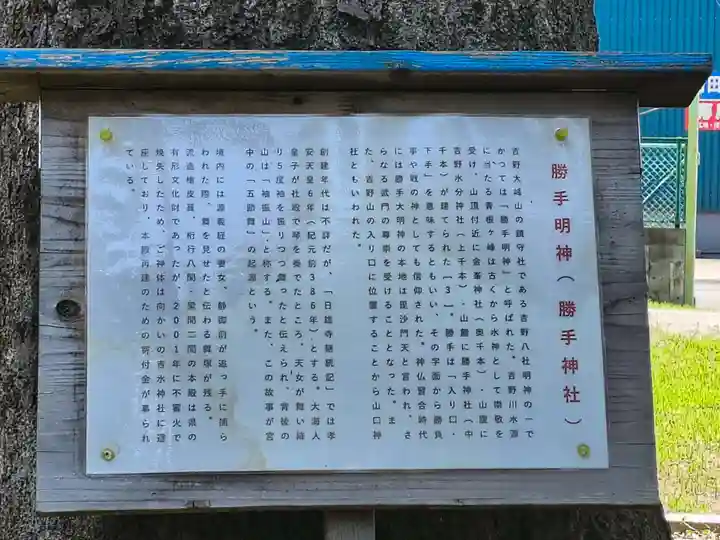 勝手明神(勝手神社)
吉野大峰山の鎮守社である吉野八社明神の一で
かつては「勝手明神」と呼ばれた。吉野川水源
に当たる青根ヶ峰は古くから水神として崇敬を
受け、山頂付近に金峯神社(奥千本)・山腹に
吉野水分神社(上千本)・山麓に勝手神社(中
千本)が建てられた[3]。勝手は「入り口・
下手」を意味するともいい、その字面から勝負
事や戦の神としても信仰された。神仏習合時代
には勝手大明神の本地は毘沙門天と言われ、さ
らなる武門の尊崇を受けることとなった。ま
た、吉野山の入り口に位置することから山口神
社ともいわれた。
創建年代は不詳だが、「日雄寺継統記」では孝
安天皇6年(紀元前386年)とする。大海人
皇子が社殿で琴を奏でたところ、天女が舞い降
り5度袖を振りつつ舞ったと伝えられ、背後の
山は「袖振山」と称する。また、この故事が宮
中の「五節舞」の起源という。
境内には源義経の妻女、静御前が追っ手に捕ら
われた際、舞を見せたと伝わる舞塚が残る。
流造檜皮葺、桁行八間・梁間二間の本殿は県の
有形文化財であったが、2001年に不審火で
焼失したため、ご神体は向かいの吉水神社に遷
座しており、本殿再建のための寄付金が募られ
ている。